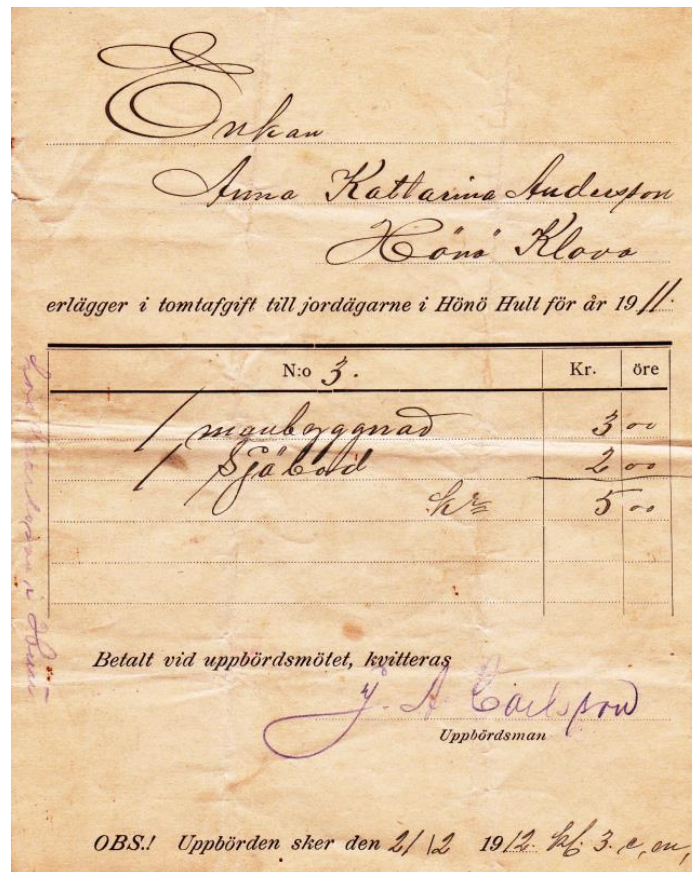 Enkan
Anna Kattarina Andersson
Hönö Klova
erlägger i tomtafgift till jordägarne i Hönö Hult för år 1911.
N:o 3. Kr. öre
1 manbyggnad 3 00
1 Sjöbod 2 00
kr 5 00
Betalt vid uppbördsmötet, kvitteras
J. A. Carlsson
Uppbördsman
OBS.! Uppbörden sker den 2/12 1912. kl. 3. e, m,